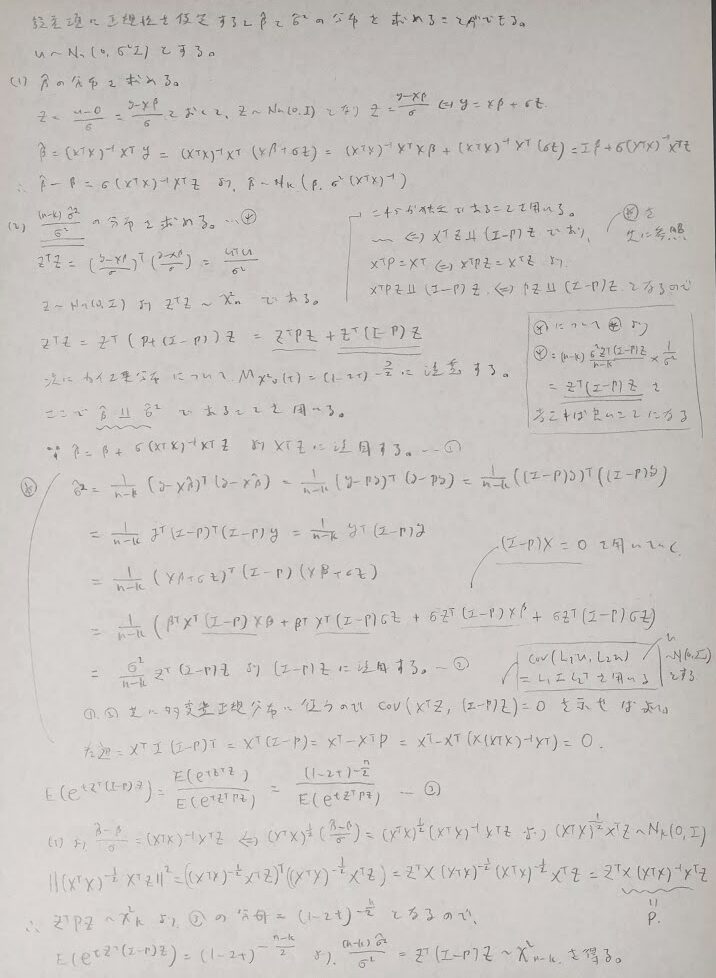 誤差項に正規性を仮定するとβ̂とσ̂²の分布を求めることができる。
u ~ Nn(0, σ²I) とする。
(1) β̂の分布を求める。
Z = (u-0)/σ = (y-Xβ)/σ とおくと、Z ~ Nn(0, I) となり Z = (y-Xβ)/σ ⇔ y = Xβ + σZ.
β̂ = (XᵀX)⁻¹Xᵀy = (XᵀX)⁻¹Xᵀ(Xβ+σZ) = (XᵀX)⁻¹XᵀXβ + (XᵀX)⁻¹Xᵀ(σZ) = Iβ + σ(XᵀX)⁻¹XᵀZ
∴ β̂ - β = σ(XᵀX)⁻¹XᵀZ より、β̂ ~ Nk(β, σ²(XᵀX)⁻¹)
(2) (n-k)σ̂²/σ² の分布を求める。…㋐
ZᵀZ = ((y-Xβ)/σ)ᵀ((y-Xβ)/σ) = uᵀu/σ²
Z ~ Nn(0, I) より ZᵀZ ~ χ²n である。
ZᵀZ = Zᵀ(P+(I-P))Z = ZᵀPZ + Zᵀ(I-P)Z
これらが独立であることを用いる。
⇔ XᵀZ ⫫ (I-P)Z であり、
XᵀP = Xᵀ ⇔ XᵀPZ = XᵀZ より
XᵀPZ ⫫ (I-P)Z ⇔ PZ ⫫ (I-P)Z となるので
㊟を
先に参照
次にカイ2乗分布について Mχ²n(t) = (1-2t)^(-n/2) に注意する。
ここで β̂ ⫫ σ̂² であることを用いる。
∵ β̂ = β + σ(XᵀX)⁻¹XᵀZ より XᵀZ に注目する。…①
= (n-k) σ²Zᵀ(I-P)Z/(n-k) × 1/σ²
= Zᵀ(I-P)Z を
考えれば良いことになる
σ̂² = 1/(n-k) (y-Xβ̂)ᵀ(y-Xβ̂) = 1/(n-k) (y-Py)ᵀ(y-Py) = 1/(n-k) ((I-P)y)ᵀ((I-P)y)
= 1/(n-k) yᵀ(I-P)ᵀ(I-P)y = 1/(n-k) yᵀ(I-P)y
= 1/(n-k) (Xβ+σZ)ᵀ(I-P)(Xβ+σZ)
(I-P)X = 0 を用いて
= 1/(n-k) (βᵀXᵀ(I-P)Xβ + βᵀXᵀ(I-P)σZ + σZᵀ(I-P)Xβ + σZᵀ(I-P)σZ)
= σ²/(n-k) Zᵀ(I-P)Z より (I-P)Z に注目する。…②
Cov(L₁u, L₂u)
= L₁ΣL₂ᵀ を用いる
u ~ N(0, Σ)
とする
①,②共に多変量正規分布に従うので Cov(XᵀZ, (I-P)Z) = 0 を示せばよい。
左辺 = XᵀI(I-P)ᵀ = Xᵀ(I-P) = Xᵀ-XᵀP = Xᵀ-Xᵀ(X(XᵀX)⁻¹Xᵀ) = 0.
E(e^(tZᵀ(I-P)Z)) = E(e^(tZᵀZ))/E(e^(tZᵀPZ)) = (1-2t)^(-n/2)/E(e^(tZᵀPZ)) …③
(1)より (β̂-β)/σ = (XᵀX)⁻¹XᵀZ ⇔ (XᵀX)^(1/2)((β̂-β)/σ) = (XᵀX)^(1/2)(XᵀX)⁻¹XᵀZ より (XᵀX)^(-1/2)XᵀZ ~ Nk(0, I)
||(XᵀX)^(-1/2)XᵀZ||² = ((XᵀX)^(-1/2)XᵀZ)ᵀ((XᵀX)^(-1/2)XᵀZ) = ZᵀX(XᵀX)^(-1/2)(XᵀX)^(-1/2)XᵀZ = ZᵀX(XᵀX)⁻¹XᵀZ
= P.
∴ ZᵀPZ ~ χ²k より ③の分母 = (1-2t)^(-k/2) となるので、
E(e^(tZᵀ(I-P)Z)) = (1-2t)^(-(n-k)/2) より、(n-k)σ̂²/σ² = Zᵀ(I-P)Z ~ χ²n-k を得る。